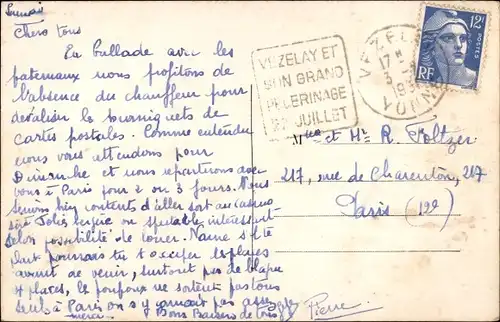 Chers tous
En ballade avec les
paternaux nous profitons de
l'absence du chauffeur pour
dévaliser le tourniquet de
cartes postales. Comme entendu
nous vous attendons pour
Dimanche et nous repartirons avec
vous à Paris pour 2 ou 3 jours. Nous
serions bien contents d'aller soit au casino
soit Folies Bergère ou spectacle intéressant
selon possibilité de louer. Name s'il te
plait pourrais tu t'occuper des places
avant de venir, surtout pas de blague
4 places, le ne sortent pas tous
seuls à Paris on s'y jamais pas assez
merci Bons Baisers de tous Pierre
VEZELAY ET
SON GRAND
PELERINAGE
22 JUILLET
VEZELAY
17
3
19
YONNE
12F
POSTES
RF
Mme et Mr R. Poltzer
217, rue de Charenton, 217
Paris (12e)